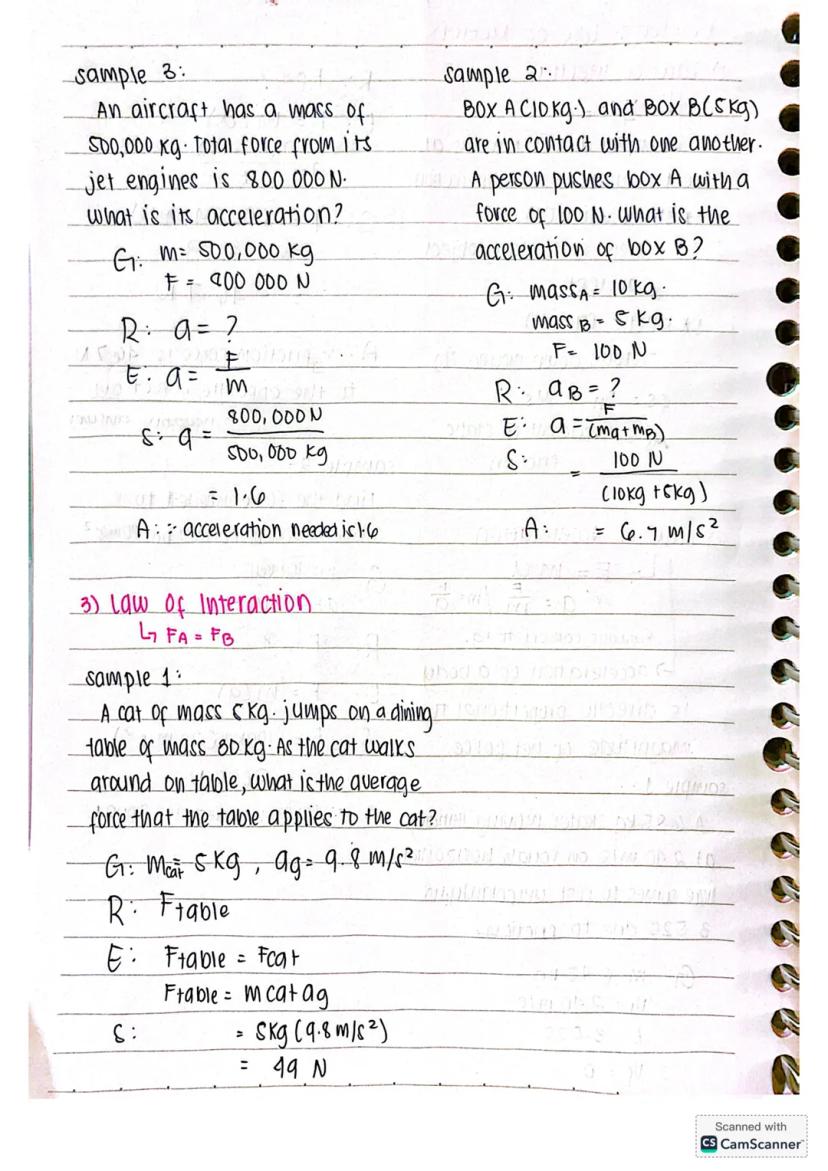 sample 3:
An aircraft has a mass of
500,000 kg. Total force from its
jet engines is 800 000 N.
What is its acceleration?
G: m= 500,000 kg
F = 800 000 N
R: a= ?
E: a= F/m
S: a = 800,000 N / 500,000 kg
= 1.6
A: ∴ acceleration needed is 1.6
sample 2:
BOX A (10 kg.) and BOX B (5 kg)
are in contact with one another.
A person pushes box A with a
force of 100 N. What is the
acceleration of box B?
G: mass A = 10 kg.
mass B = 5 kg.
F= 100 N
R: aB = ?
E: a = F/(ma+mB)
S: = 100 N / (10kg + 5kg)
A: = 6.7 m/s²
3) Law of Interaction
↳ FA = FB
sample 1:
A cat of mass 5 kg. jumps on a dining
table of mass 80 kg. As the cat walks
around on table, what is the average
force that the table applies to the cat?
G: mcat = 5 kg, ag = 9.8 m/s²
R: Ftable
E: Ftable = Fcat
Ftable = mcat ag
S: = 5kg (9.8 m/s²)
= 49 N
Scanned with
CS CamScanner